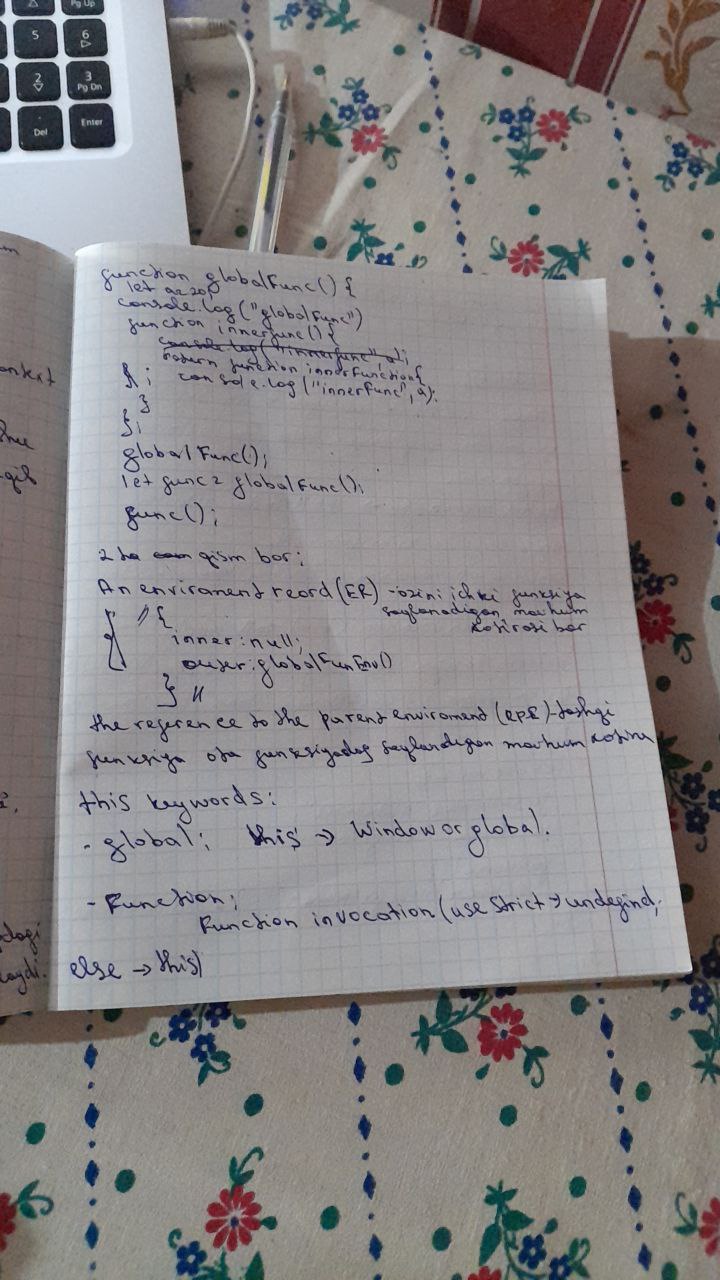 5
6
Pg Up
2
3
Pg Dn
Del
Enter
ontext
function globalFunc() {
let a=20;
console.log("globalFunc")
function innerfunc() {
console.log("innerfunc", a);
return function innerFunction{
} ; console.log("innerFunc", a);
}
};
globalFunc();
let func = globalFunc();
func();
2 ta qism bor;
An enviroment reord (ER) - ozini ichki funksiya
saqlanadigan mavhum
xotirasi bor
{ // {
inner: null;
outer: globalFunEnv()
} //
the reference to the parent enviroment (RPE) - tashqi
funksiya ota funksiyadag saqlandigan mavhum xotira
this keywords:
- global; this → Window or global.
- Function;
Function invocation (use Strict → undefind;
else → this)